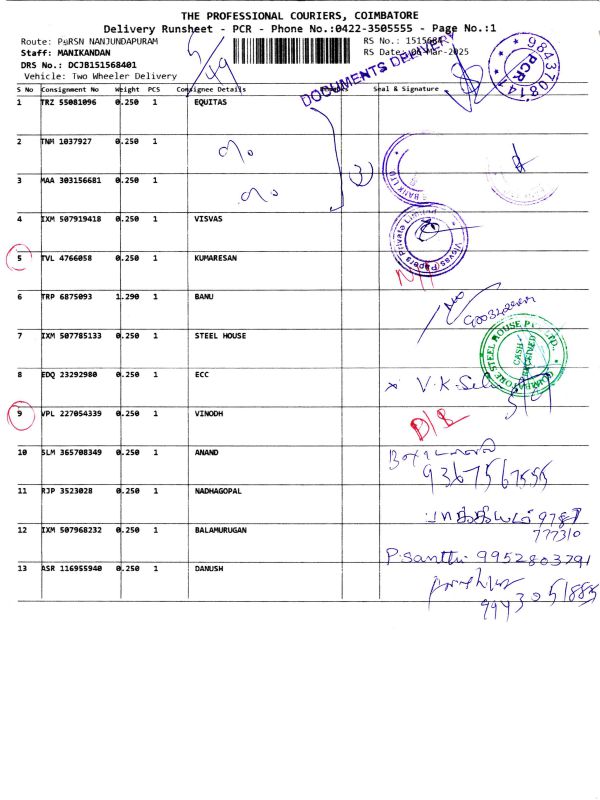 THE PROFESSIONAL COURIERS, COIMBATORE
Delivery Runsheet - PCR - Phone No.:0422-3505555 - Page No.:1
Route: NANJUNDAPURAM
Staff: MANIKANDAN
DRS No.: DCJB151568401
Vehicle: Two Wheeler Delivery
RS No.: 1515684
RS Date: -Mar-2025
DOCUMENTS DELIVERY
984370814
PCR
5/49
S No Consignment No Weight PCS Consignee Details Seal & Signature
1 TRZ 55081096 0.250 1 EQUITAS
2 TNM 1037927 0.250 1
3 MAA 303156681 0.250 1
3
BANK LTD
4 IXM 507919418 0.250 1 VISVAS
Visvas Papers Private Limited
5 TVL 4766058 0.250 1 KUMARESAN
6 TRP 6875093 1.290 1 BANU
7 IXM 507785133 0.250 1 STEEL HOUSE
COIMBATORE STEEL HOUSE LTD.
CASH
RECEIVED
8 EDQ 23292980 0.250 1 ECC
V.K.
9 VPL 227054339 0.250 1 VINODH
D/L
10 SLM 365708349 0.250 1 ANAND
9367567555
11 RJP 3523028 0.250 1 NADHAGOPAL
12 IXM 507968232 0.250 1 BALAMURUGAN
777310
P.Santhi 9952803791
13 ASR 116955940 0.250 1 DANUSH